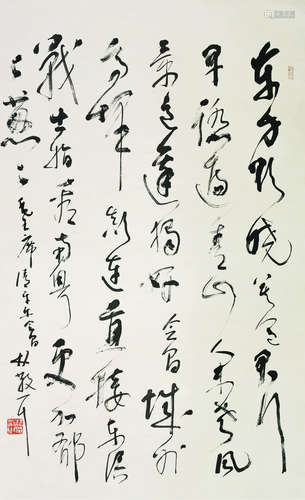 東方欲曉莫道君行
早踏遍青山人未老風
景這邊獨好會昌城外
高峰顛連直接東溟
戰士指看南粵更加郁
々葱々 毛主席清平乐會昌 林散耳